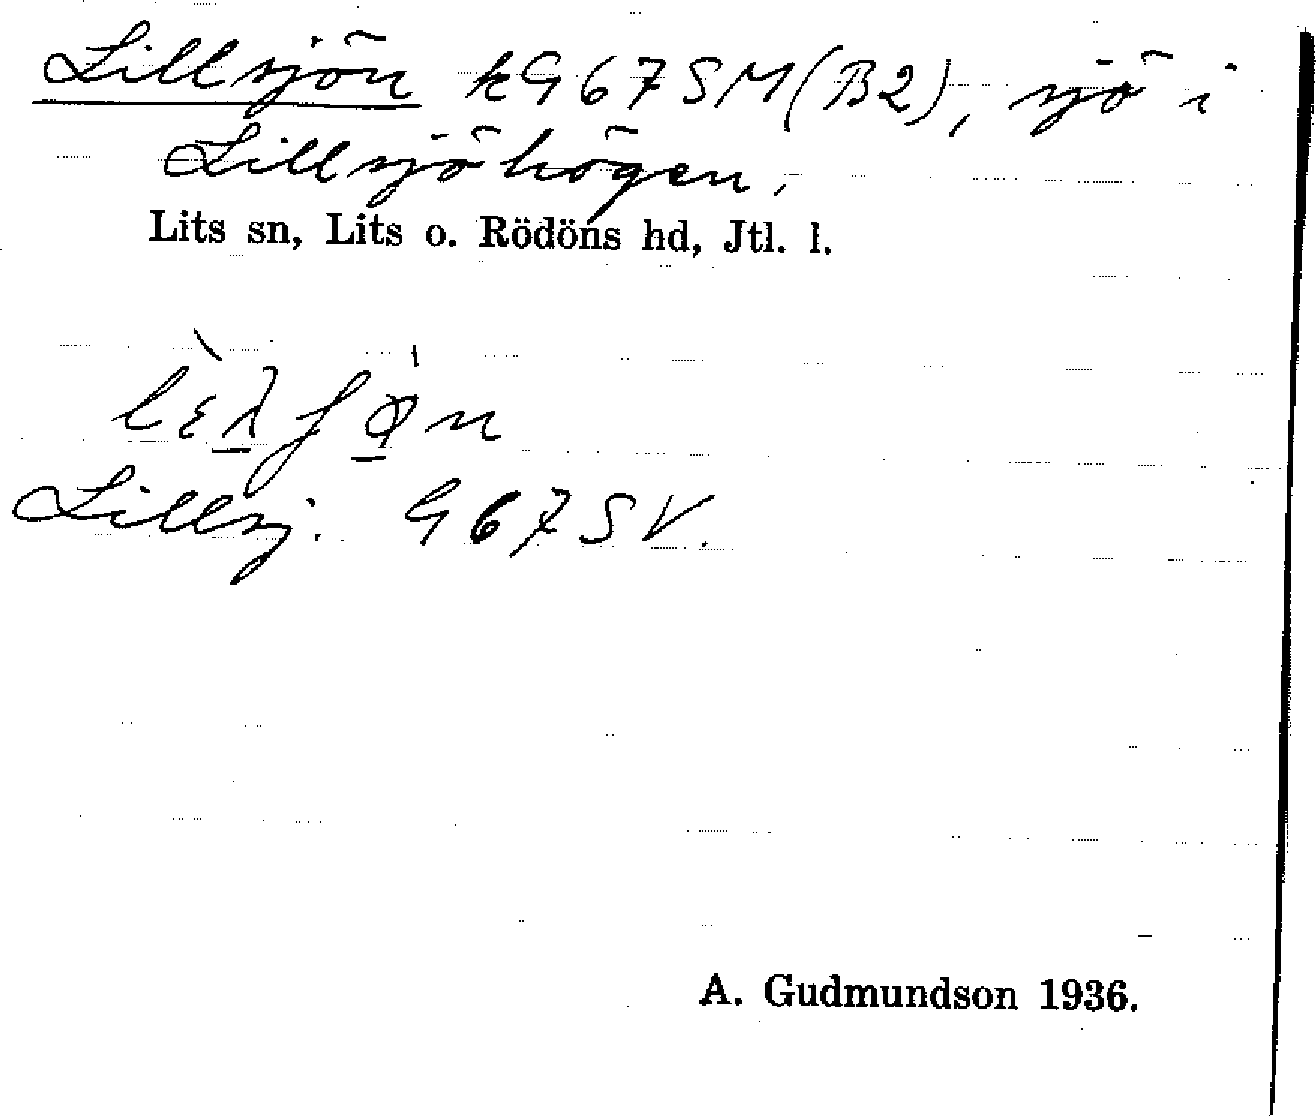 Lillsjön kG67SM(B2), sjö i
Lillsjöhögen,
Lits sn, Lits o. Rödöns hd, Jtl. l.
Lillsj. G67SV.
A. Gudmundson 1936.